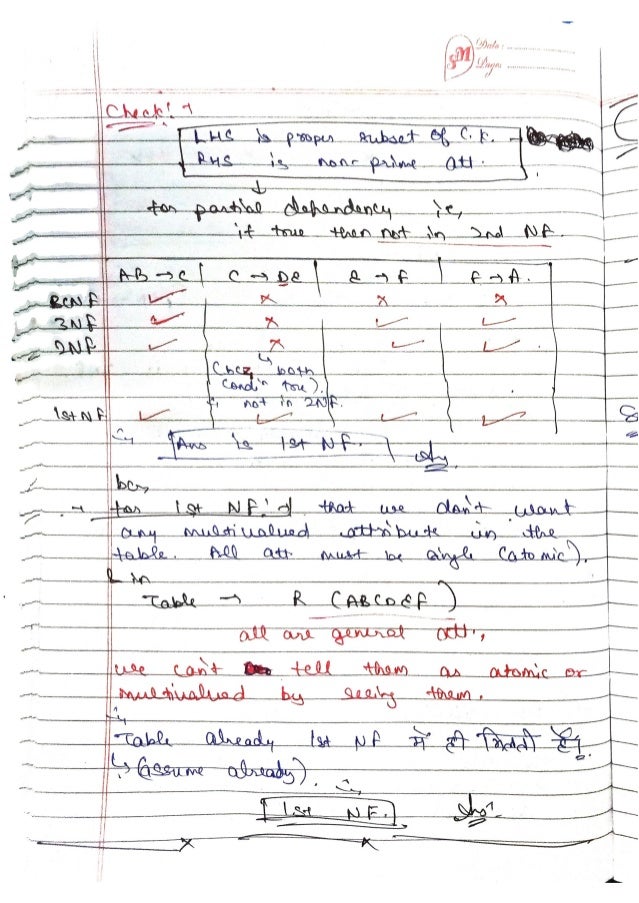 Date :
Page :
Check! →
LHS is proper subset of C.K. →
RHS is non-prime att.
↓
for partial dependency ie,
if true then not in 2nd NF.
AB → C | C → DE | E → F | F → A.
BCNF ✓ × × ×
3NF ✓ × ✓ ✓
2NF ✓ × ✓ ✓
(bcz both
condiⁿ true).
∴ not in 2NF.
1st NF ✓ ✓ ✓ ✓
∴ Ans is 1st NF.
bcz
→ for 1st NF: → that we don't want
any multivalued attribute in the
table. All att. must be single (atomic).
& in
Table → R (ABCDEF)
all are general att.,
we can't tell them as atomic or
multivalued by seeing them.
∴
Table already 1st NF में ही मिलती है।
↳ (assume already). ∴
1st NF. Ans.